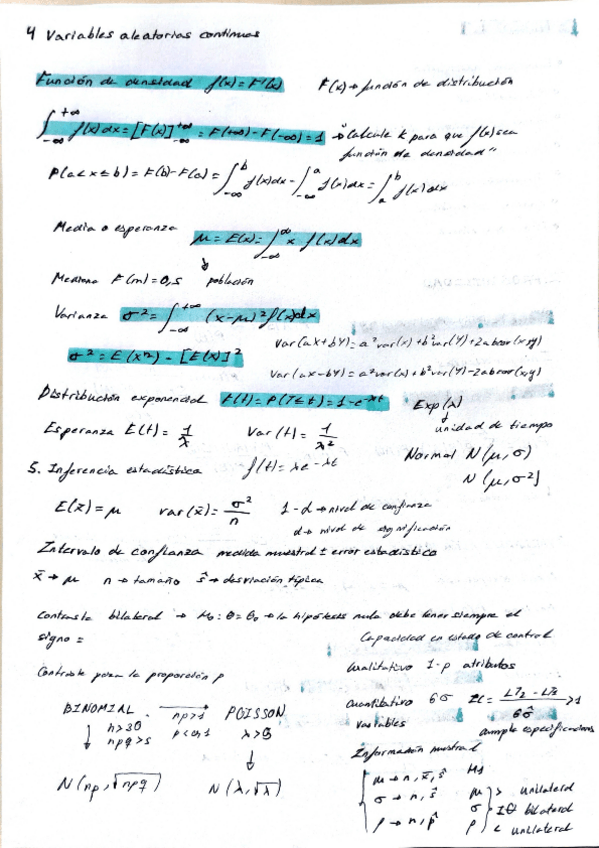 4 Variables aleatorias continuas
Función de densidad f(x) = F'(x) F(x) → función de distribución
∫_{-∞}^{+∞} f(x)dx = [F(x)]_{-∞}^{+∞} = F(+∞) - F(-∞) = 1 → "Calcule k para que f(x) sea
función de densidad"
P(a < x ≤ b) = F(b) - F(a) = ∫_{-∞}^{b} f(x)dx - ∫_{-∞}^{a} f(x)dx = ∫_{a}^{b} f(x)dx
Media o esperanza μ = E(x) = ∫_{-∞}^{∞} x f(x)dx
Mediana F(m) = 0,5 población
Varianza σ² = ∫_{-∞}^{+∞} (x-μ)² f(x)dx
var(aX+bY) = a²var(x) + b²var(Y) + 2abcov(x,y)
σ² = E(x²) - [E(x)]²
var(ax-bY) = a²var(x) + b²var(Y) - 2abcov(x,y)
Distribución exponencial F(t) = P(T≤t) = 1-e^{-λt} Exp(λ)
unidad de tiempo
Esperanza E(t) = 1/λ Var(t) = 1/λ²
Normal N(μ,σ)
N(μ,σ²)
5. Inferencia estadística f(t) = λe^{-λt}
E(x̄) = μ var(x̄) = σ²/n 1-α → nivel de confianza
α → nivel de significación
Intervalo de confianza medida muestral ± error estadístico
x̄ → μ n → tamaño ŝ → desviación típica
Contraste bilateral → H₀: θ = θ₀ → la hipótesis nula debe tener siempre el
signo =
Capacidad en estado de control
Cualitativo 1-p atributos
Contraste para la proporción p
Cuantitativo 6σ IC = (LT₂ - LT₁)/6σ̂ > 1
variables cumple especificaciones
BINOMIAL → POISSON
n>30
npq>5
np>1
λ>
Información muestral
N(np, √npq) N(λ, √λ)
H₁
μ → n, x̄, ŝ μ > unilateral
σ → n, ŝ σ bilateral
p → n, p̂ p < unilateral